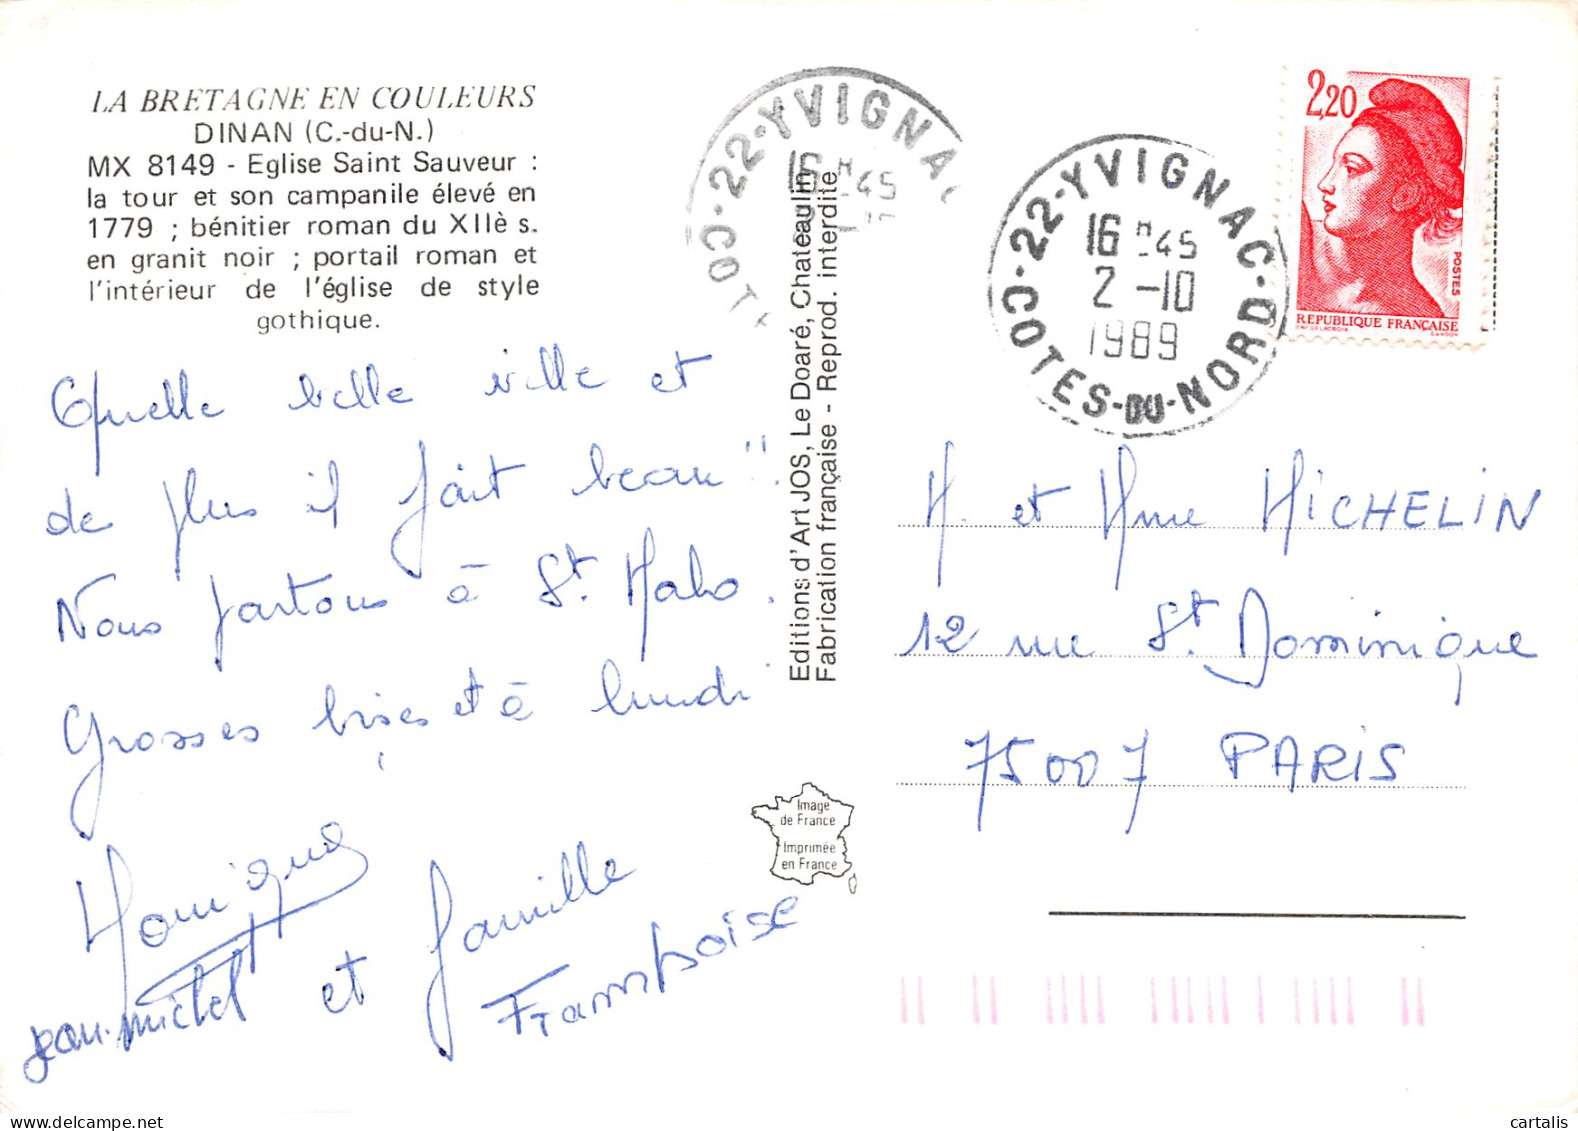 LA BRETAGNE EN COULEURS
DINAN (C.-du-N.)
MX 8149 - Eglise Saint Sauveur :
la tour et son campanile élevé en
1779 ; bénitier roman du XIIè s.
en granit noir ; portail roman et
l'intérieur de l'église de style
gothique.
Quelle belle ville et
de plus il fait beau !!
Nous partons à St. Malo.
Grosses bises et à lundi
Monique
jean-michel et famille
Framboise
Editions d'Art JOS, Le Doaré, Chateaulin
Fabrication française - Reprod. interdite
Image
de France
Imprimée
en France
22-YVIGNAC
16 H 45
COT
22-YVIGNAC
16 H -45
2 -10
1989
COTES-DU-NORD
2,20
POSTES
REPUBLIQUE FRANÇAISE
M. et Mme MICHELIN
12 rue St. Dominique
75007 PARIS
cartalis